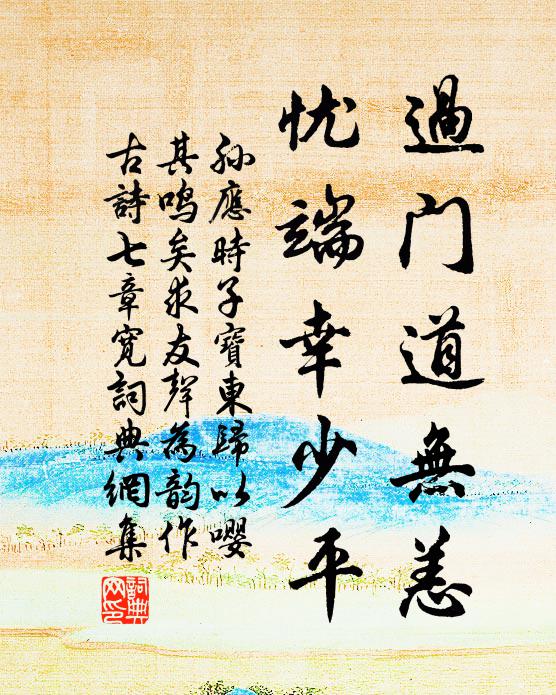 過门道無恙
忧端幸少平
孙應時子寶東歸以嘤
其鸣矣求友聲為韵作
古詩七章寛詞典網集
詞典
网印